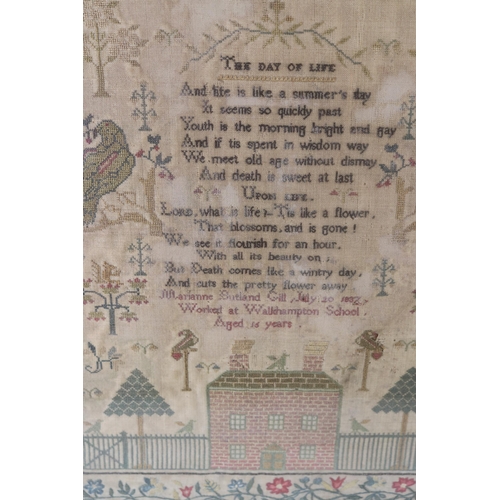 THE DAY OF LIFE
And life is like a summer's day
It seems so quickly past
Youth is the morning bright and gay
And if tis spent in wisdom way
We meet old age without dismay
And death is sweet at last
UPON LIFE.
LORD, what is life?- Tis like a flower,
That blossoms, and is gone!
We see it flourish for an hour,
With all its beauty on
But Death comes like a wintry day,
And cuts the pretty flower away
Marianne Sutland Gill July 20
Worked at Walkhampton School.
Aged 16 years.